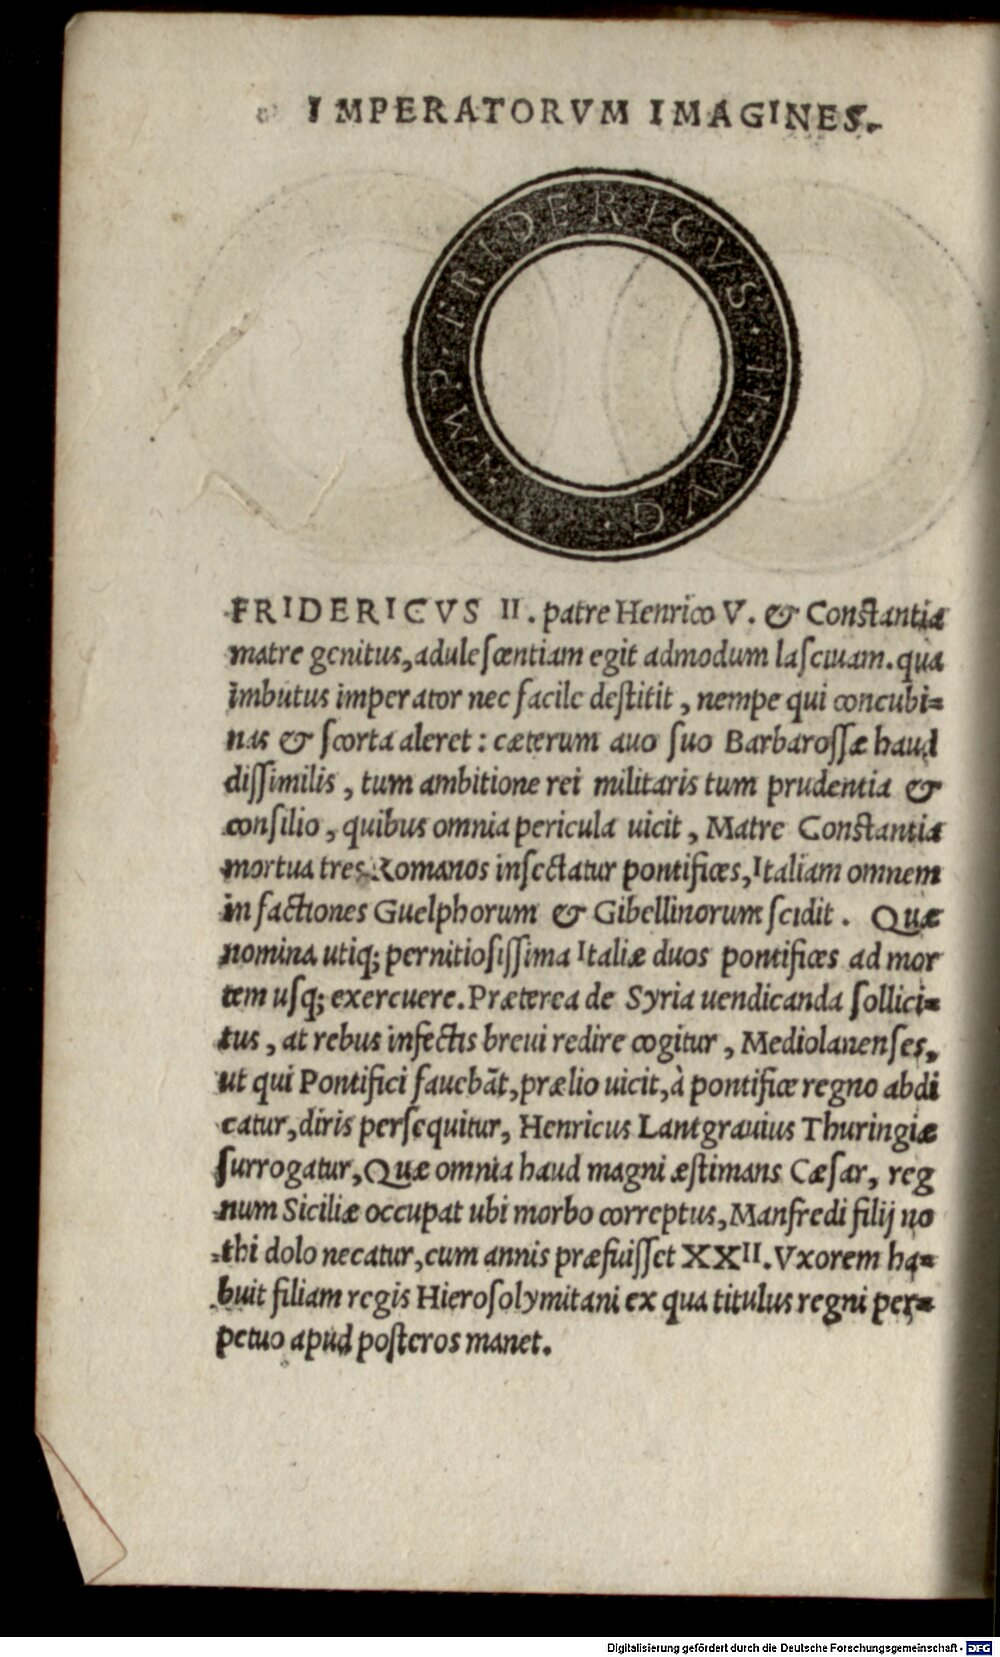 IMPERATORVM IMAGINES.
IMP. FRIDERICVS. II. AVG.
FRIDERICVS II. patre Henrico V. & Constantia
matre genitus, adulescentiam egit admodum lasciuam. qua
imbutus imperator nec facile destitit, nempe qui concubi=
nas & scorta aleret: cæterum auo suo Barbarossæ haud
dissimilis, tum ambitione rei militaris tum prudentia &
consilio, quibus omnia pericula uicit, Matre Constantia
mortua tres Romanos insectatur pontifices, Italiam omnem
in factiones Guelphorum & Gibellinorum scidit. Quæ
nomina utiq; pernitiosissima Italiæ duos pontifices ad mor
tem usq; exercuere. Præterea de Syria uendicanda sollici=
tus, at rebus infectis breui redire cogitur, Mediolanenses,
ut qui Pontifici fauebãt, prælio uicit, à pontifice regno abdi
catur, diris persequitur, Henricus Lantgrauius Thuringiæ
surrogatur, Quæ omnia haud magni æstimans Cæsar, reg
num Siciliæ occupat ubi morbo correptus, Manfredi filij no
thi dolo necatur, cum annis præfuisset XXII. Vxorem ha=
buit filiam regis Hierosolymitani ex qua titulus regni per=
petuo apud posteros manet.
Digitalisierung gefördert durch die Deutsche Forschungsgemeinschaft - DFG